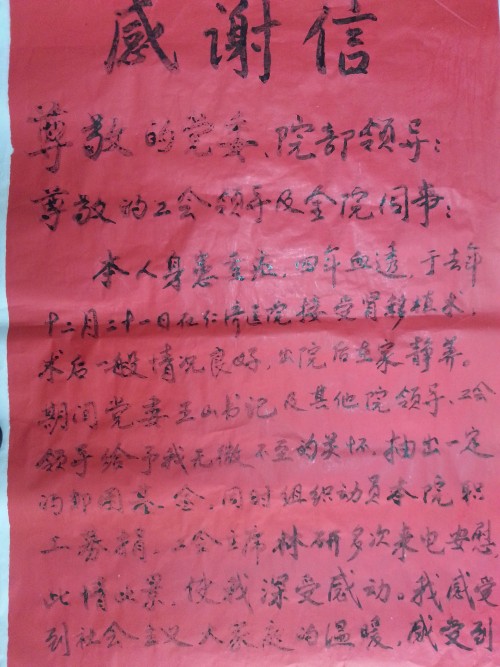 感谢信
尊敬的党委、院部领导：
尊敬的工会领导及全院同事：
本人身患重症，四年血透，于去年
十二月二十一日在仁济医院接受肾移植术，
术后一般情况良好，出院后在家静养。
期间党委王山书记及其他院领导、工会
领导给予我无微不至的关怀，抽出一定
的帮困基金，同时组织动员本院职
工募捐，工会主席林研多次来电安慰
此情此景，使我深受感动。我感受
到社会主义大家庭的温暖，感受到